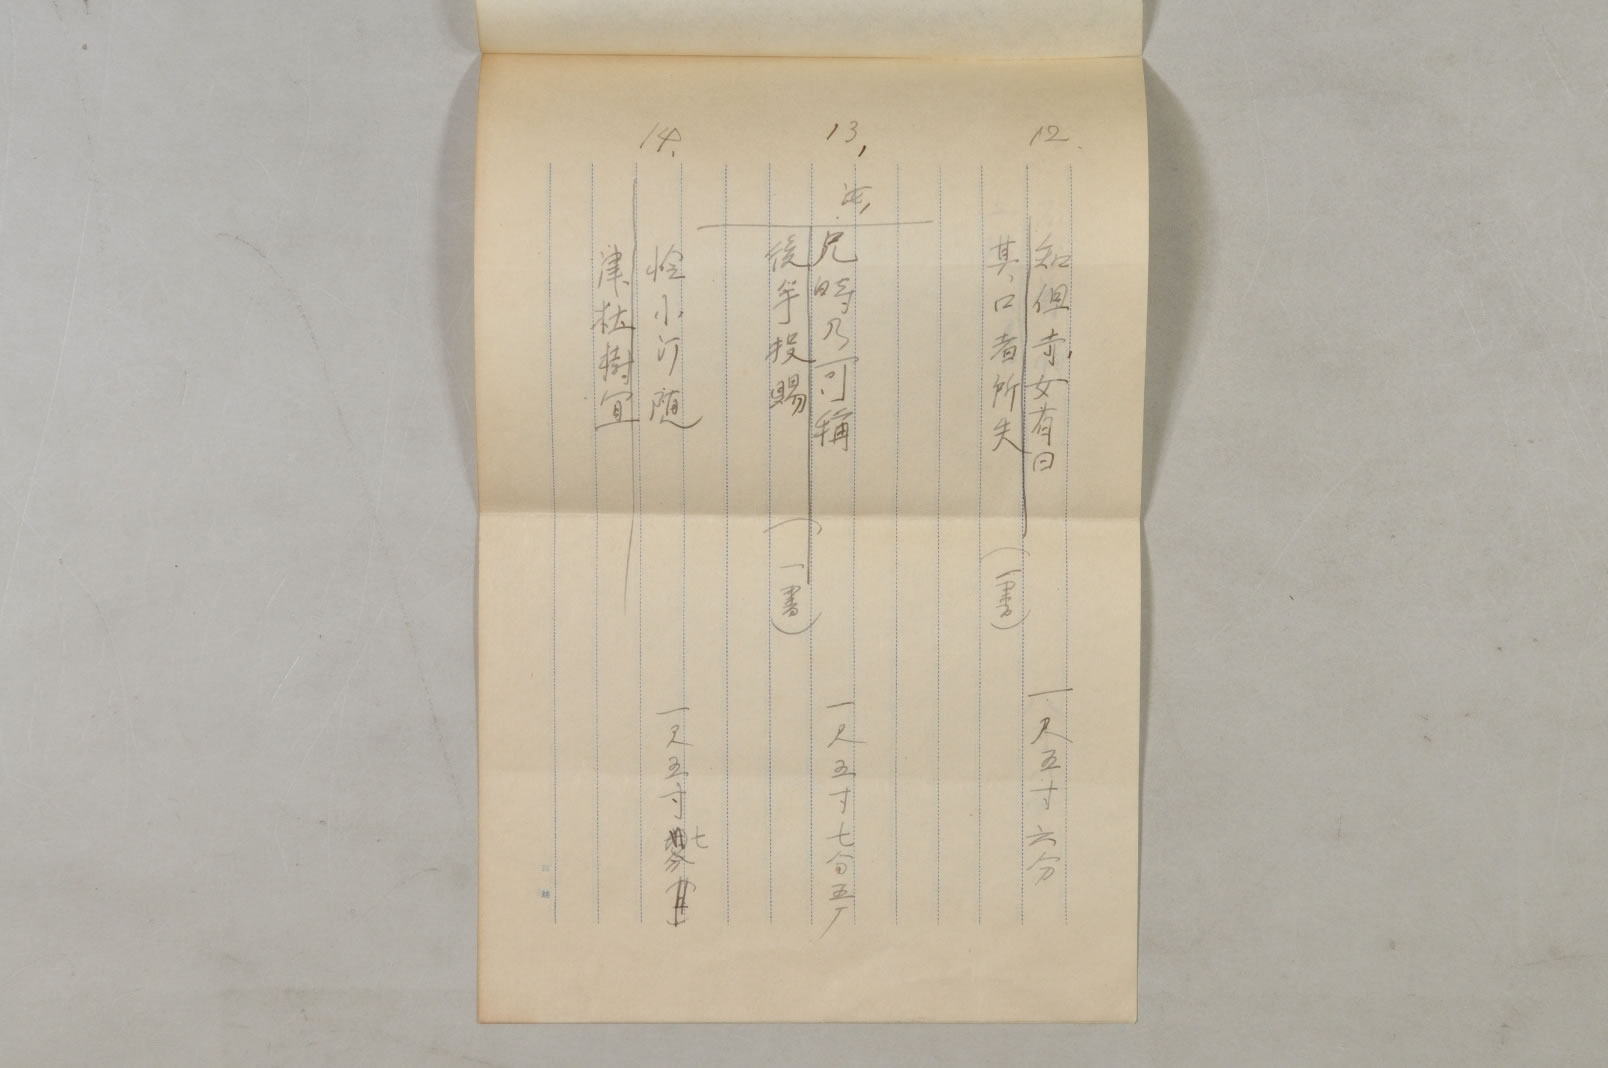 12.
知但寺女有曰
其口者所失
(一書)
一尺五寸六分
13,
兄時乃可稱
後年投賜
(一書)
一尺五寸七分五厂
14.
怜小河随
津枯樹宜
一尺五寸七